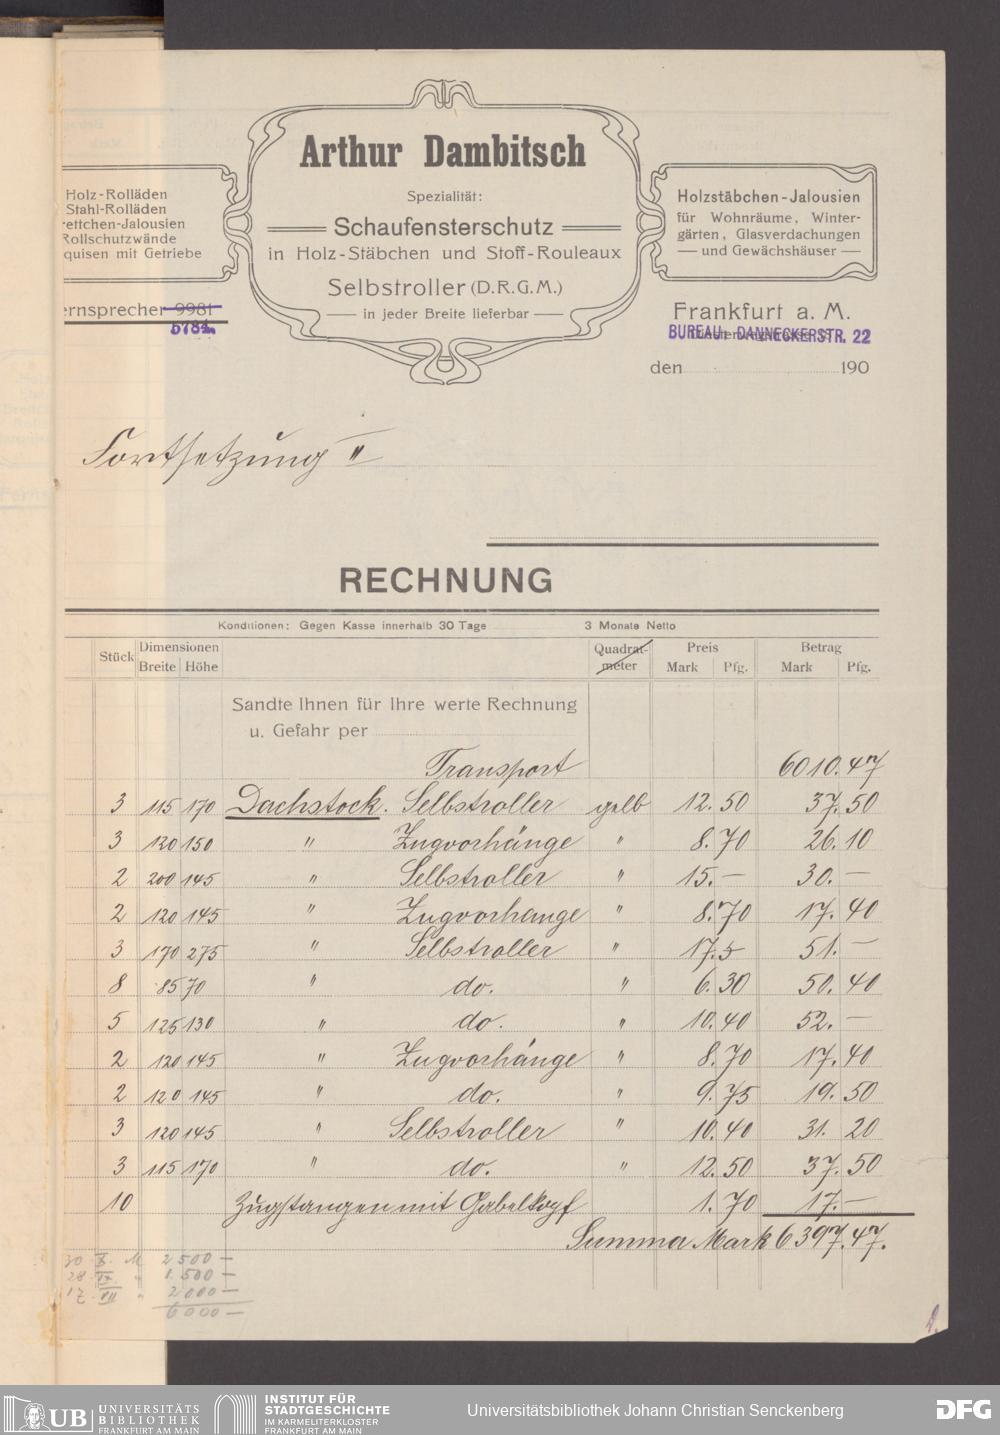 Arthur Dambitsch
Spezialität:
Schaufensterschutz
in Holz-Stäbchen und Stoff-Rouleaux
Selbstroller (D.R.G.M.)
in jeder Breite lieferbar
Holz-Rolläden
Stahl-Rolläden
rettchen-Jalousien
Rollschutzwände
quisen mit Getriebe
ernsprecher 9981
5784.
Holzstäbchen-Jalousien
für Wohnräume, Winter-
gärten, Glasverdachungen
und Gewächshäuser
Frankfurt a. M.
BUREAU: DANNECKERSTR. 22
den 190
Fortsetzung II
RECHNUNG
Konditionen: Gegen Kasse innerhalb 30 Tage 3 Monate Netto
Stück Dimensionen Breite Höhe Quadrat-meter Preis Mark Pfg. Betrag Mark Pfg.
Sandte Ihnen für Ihre werte Rechnung
u. Gefahr per
Transport 6010.47
3 115 170 Dachstock. Selbstroller gelb 12.50 37.50
3 120 150 " Zugvorhänge " 8.70 26.10
2 200 145 " Selbstroller " 15.— 30.—
2 120 145 " Zugvorhange " 8.70 17.40
3 170 275 " Selbstroller " 17.— 51.—
8 85 70 " do. " 6.30 50.40
5 125 130 " do. " 10.40 52.—
2 120 145 " Zugvorhänge " 8.70 17.40
2 120 145 " do. " 9.75 19.50
3 120 145 " Selbstroller " 10.40 31.20
3 115 170 " do. " 12.50 37.50
10 Zugstangen mit Gabelkopf 1.70 17.—
Summa Mark 6397.47.
30. X. M 2500 —
28. IX. " 1500 —
17. VII " 2000 —
6000 —
UB UNIVERSITÄTS
BIBLIOTHEK
FRANKFURT AM MAIN
INSTITUT FÜR
STADTGESCHICHTE
IM KARMELITERKLOSTER
FRANKFURT AM MAIN
Universitätsbibliothek Johann Christian Senckenberg
DFG